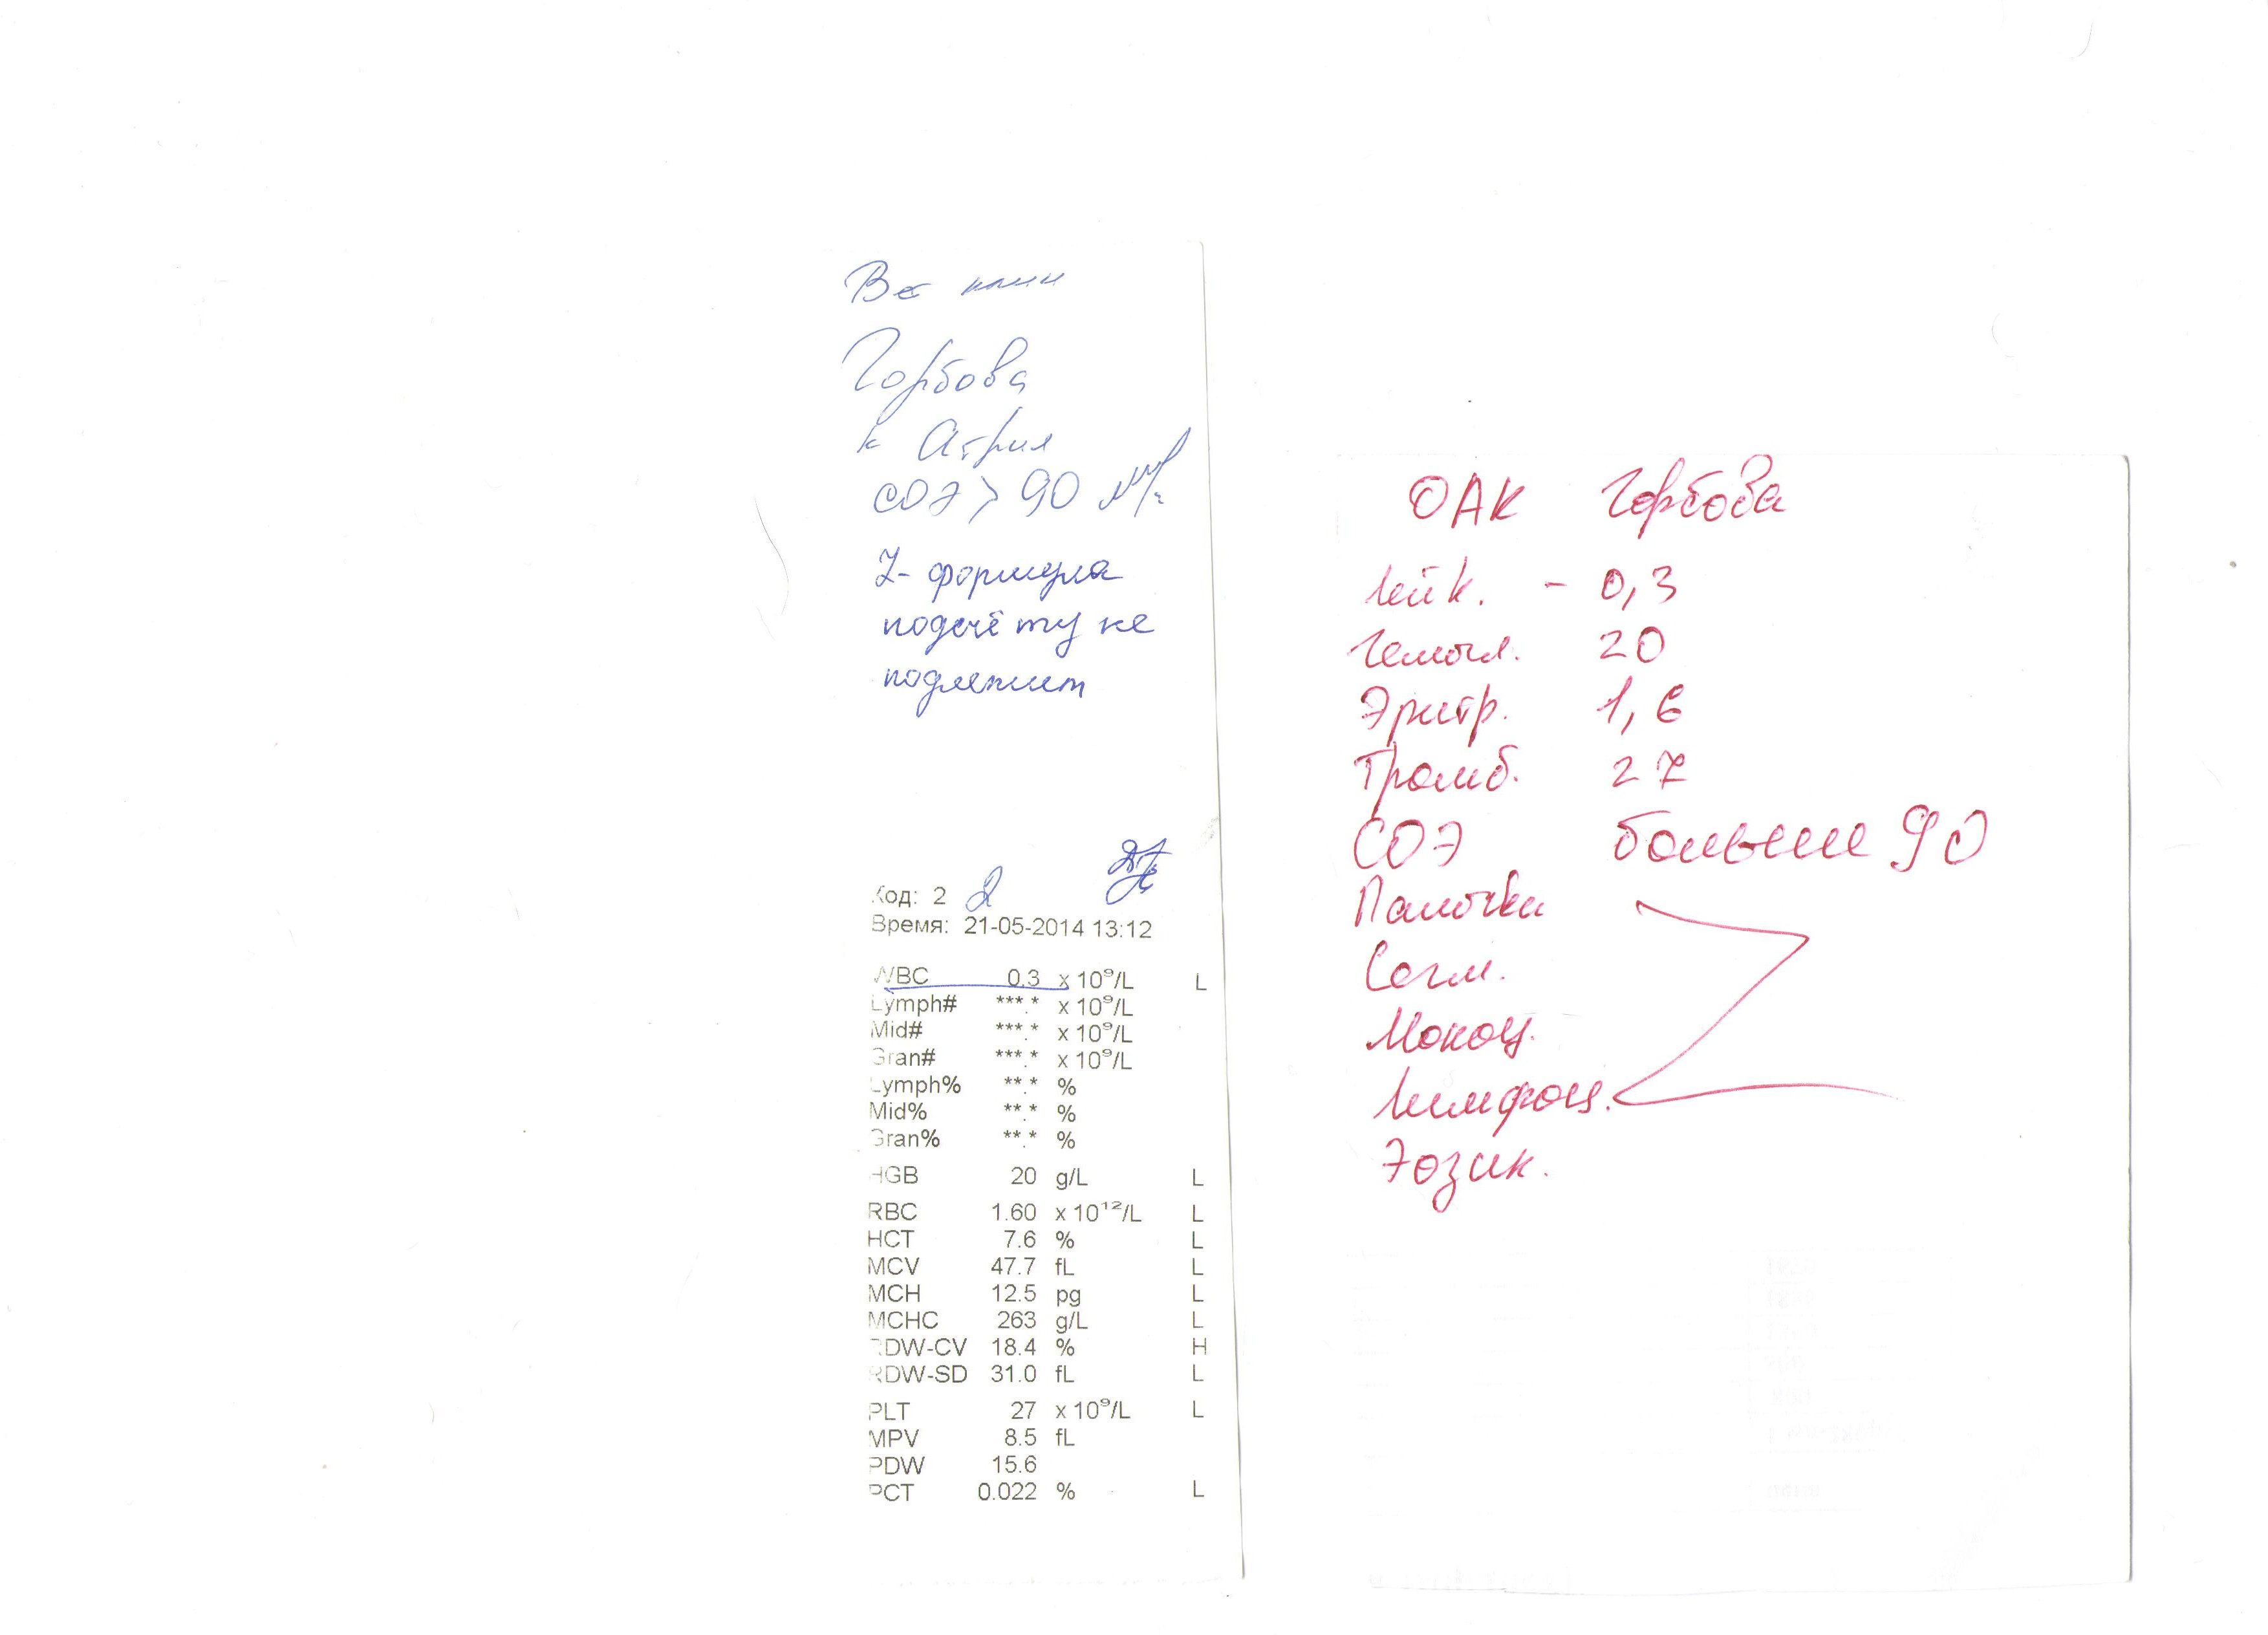 Вет клин
Горбова
к Атрия
СОЭ > 90 мм/ч
L- формула
подсчёту не
подлежит
Код: 2 2
Время: 21-05-2014 13:12
WBC 0.3 x 10⁹/L L
Lymph# ***.* x 10⁹/L
Mid# ***.* x 10⁹/L
Gran# ***.* x 10⁹/L
Lymph% **.* %
Mid% **.* %
Gran% **.* %
HGB 20 g/L L
RBC 1.60 x 10¹²/L L
HCT 7.6 % L
MCV 47.7 fL L
MCH 12.5 pg L
MCHC 263 g/L L
RDW-CV 18.4 % H
RDW-SD 31.0 fL L
PLT 27 x 10⁹/L L
MPV 8.5 fL
PDW 15.6
PCT 0.022 % L
ОАК Горбова
Лейк. - 0,3
Гемогл. 20
Эритр. 1,6
Тромб. 27
СОЭ больше 90
Палочки
Сегм.
Моноц.
Лимфоц.
Эозин.